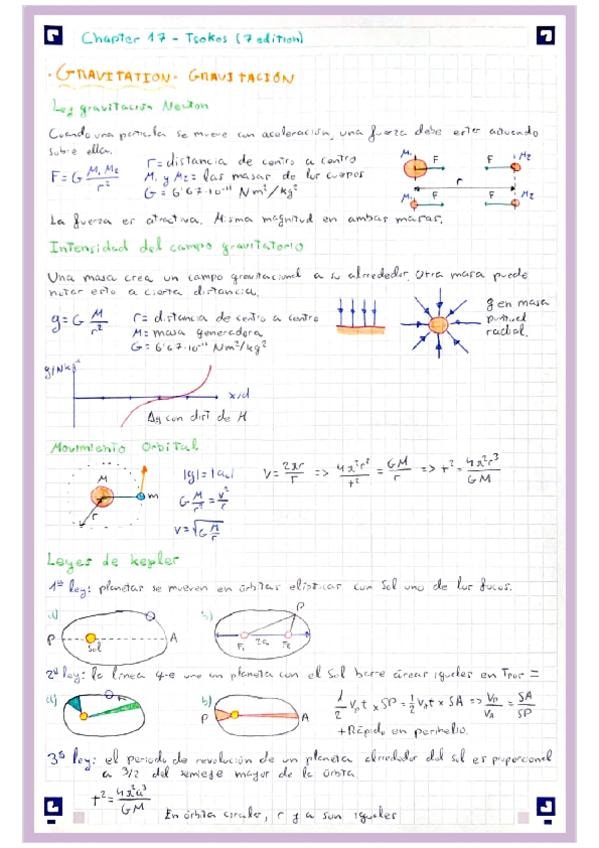 Chapter 17 - Tsokos (7 edition)
· GRAVITATION · GRAVITACIÓN
Ley gravitación Newton
Cuando una partícula se mueve con aceleración, una fuerza debe estar actuando
sobre ella.
F = G M₁ M₂ / r²
r = distancia de centro a centro
M₁ y M₂ = las masas de los cuerpos
G = 6'67·10⁻¹¹ Nm²/kg²
M₁ F F M₂
r
M₁ F F M₂
La fuerza es atractiva. Misma magnitud en ambas masas.
Intensidad del campo gravitatorio
Una masa crea un campo gravitacional a su alrededor. Otra masa puede
notar esto a cierta distancia.
g = G M / r²
r = distancia de centro a centro
M = masa generadora
G = 6'67·10⁻¹¹ Nm²/kg²
g en masa
puntual
radial.
g/Nkg⁻¹
x/d
Δg con dist de M
Movimiento Orbital
M
m
r
|g| = |ac|
G M / r² = v² / r
v = √(G M / r)
v = 2πr / T => 4π²r² / t² = GM / r => t² = 4π²r³ / GM
Leyes de kepler
1ª ley: planetas se mueven en órbitas elípticas con Sol uno de los focos.
a)
P Sol A
b)
P
F₁ 2a F₂
2ª ley: la línea q-e une un planeta con el Sol barre áreas iguales en Tpos =
a)
b)
P A
1/2 vₚt × SP = 1/2 vₐt × SA => vₚ / vₐ = SA / SP
+ Rápido en perihelio.
3ª ley: el periodo de revolución de un planeta alrededor del sol es proporcional
a 3/2 del semieje mayor de la órbita.
t² = 4π²a³ / GM
En órbita circular, r y a son iguales